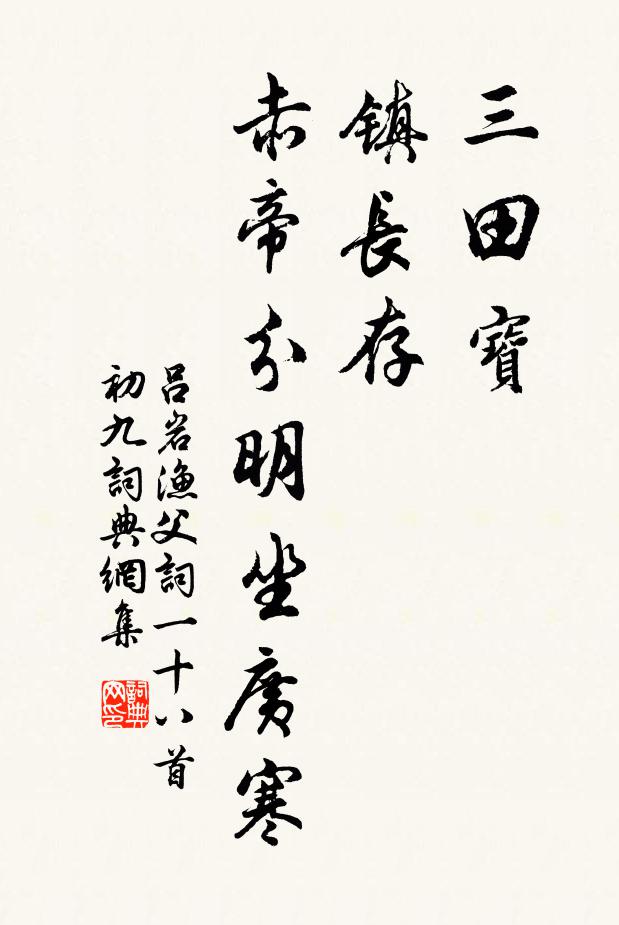 三田寶
鎮長存
赤帝分明坐廣寒
吕岩漁父詞一十八首
初九詞典網集
詞典网印